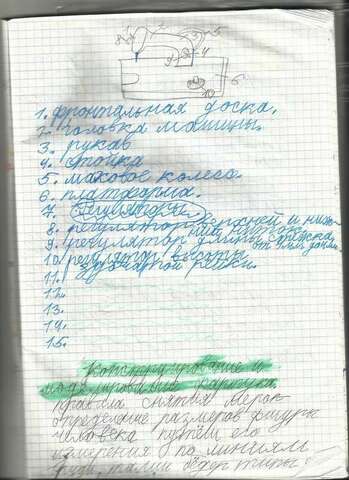 1. фронтальная доска.
2. головка машины.
3. рукав
4. стойка
5. маховое колесо
6. платформа.
7. Регуляторы
8. регулятор верхней и ниж-
ний ниток.
9. регулятор длины стежка
от 1 мм до 4мм.
10. регулятор высоты
зубчатой рейки.
11.
12.
13.
14.
15.
Конструирование и
моделирование фартука
правила снятия мерок
определение размеров фигуры
человека путём его
измерения по линиям
груди, талии бедер